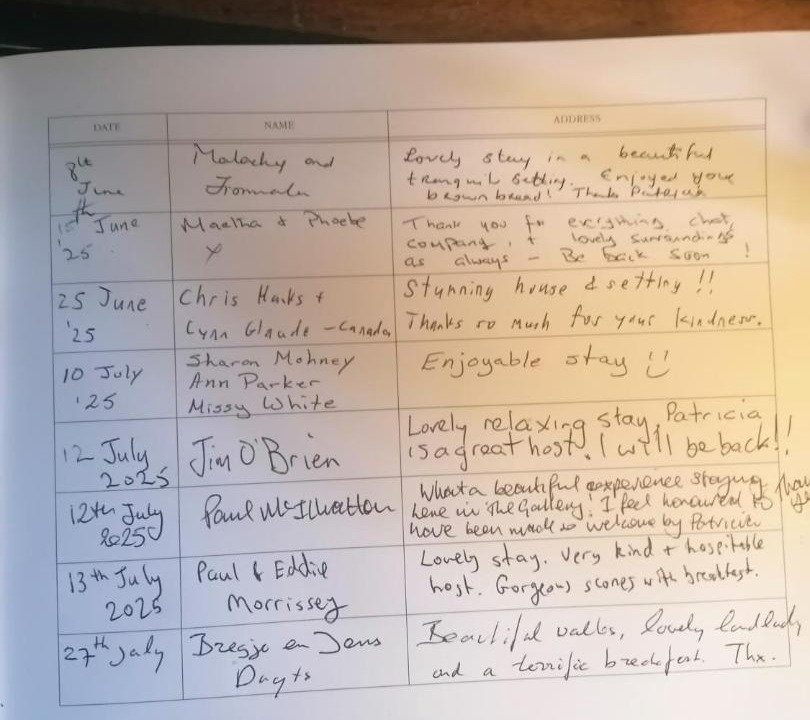 DATE NAME ADDRESS
8th June
Malachy and
Lovely stay in a beautiful
tranquil setting. Enjoyed your
brown bread! Thanks Patricia
15th June '25
Martha & Phoebe
X
Thank you for everything, chat,
company, + lovely surroundings
as always - Be back soon !
25 June '25
Chris Hanks +
Lynn Glaude - Canada
Stunning house & setting !!
Thanks so much for your kindness.
10 July '25
Sharon Mohney
Ann Parker
Missy White
Enjoyable stay
12 July 2025
Jim O'Brien
Lovely relaxing stay, Patricia
is a great host. I will be back!!
12th July 2025
Paul McIlwatton
What a beautiful experience staying
here in The Gallery! I feel honoured to
have been made so welcome by Patricia
13th July 2025
Paul & Eddie
Morrissey
Lovely stay. Very kind + hospitable
host. Gorgeous scones with breakfast.
27th July
en Jens
Beautiful walks, lovely landlady
and a terrific breakfast. Thx.